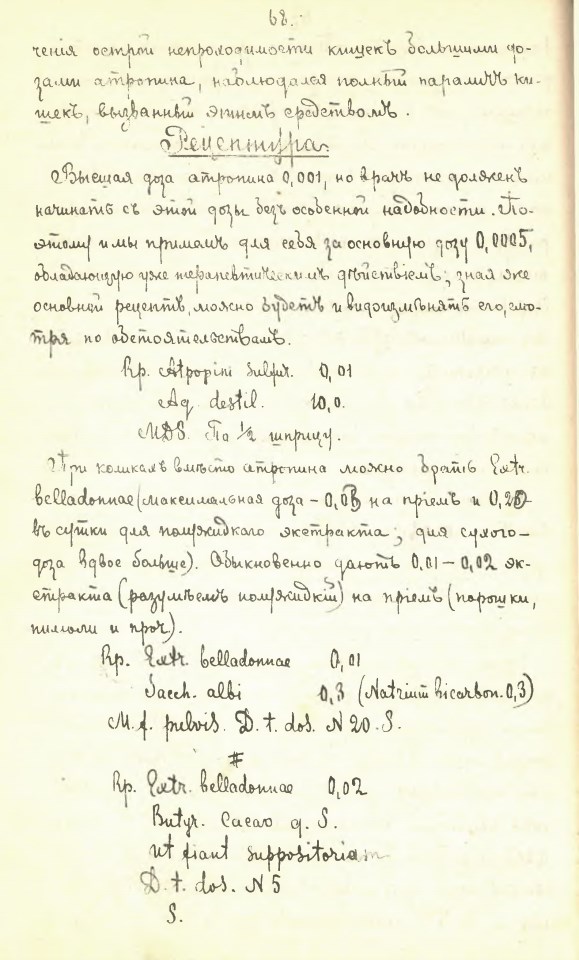 68.
ченія острой непроходимости кишекъ большими до-
зами атропина, наблюдался полный параличъ ки-
шекъ, вызванный этимъ средствомъ.
Рецептура.
Высшая доза атропина 0,001, но врачъ не долженъ
начинать съ этой дозы безъ особенной надобности. По-
этому и мы примемъ для себя за основную дозу 0,0005,
обладающую уже терапевтическимъ дѣйствіемъ; зная же
основной рецептъ, можно будетъ и видоизмѣнять его, смо-
тря по обстоятельствамъ.
Rp. Atropini sulfur. 0,01
Aq. destil. 10,0.
MDS. По 1/2 шприцу.
При коликахъ вмѣсто атропина можно брать Extr.
belladonnae (максимальная доза – 0,05 на пріемъ и 0,20
въ сутки для полужидкаго экстракта; для сухого –
доза вдвое больше). Обыкновенно даютъ 0,01 – 0,02 эк-
стракта (разумѣемъ полужидкій) на пріемъ (порошки,
пилюли и проч).
Rp. Extr. belladonnae 0,01
Sacch. albi 0,3 (Natrium bicarbon. 0,3)
M. f. pulvis. D. t. dos. N 20. S.
#
Rp. Extr. belladonnae 0,02
Butyr. Cacao q. S.
ut fiant suppositoriam
D. t. dos. N 5
S.